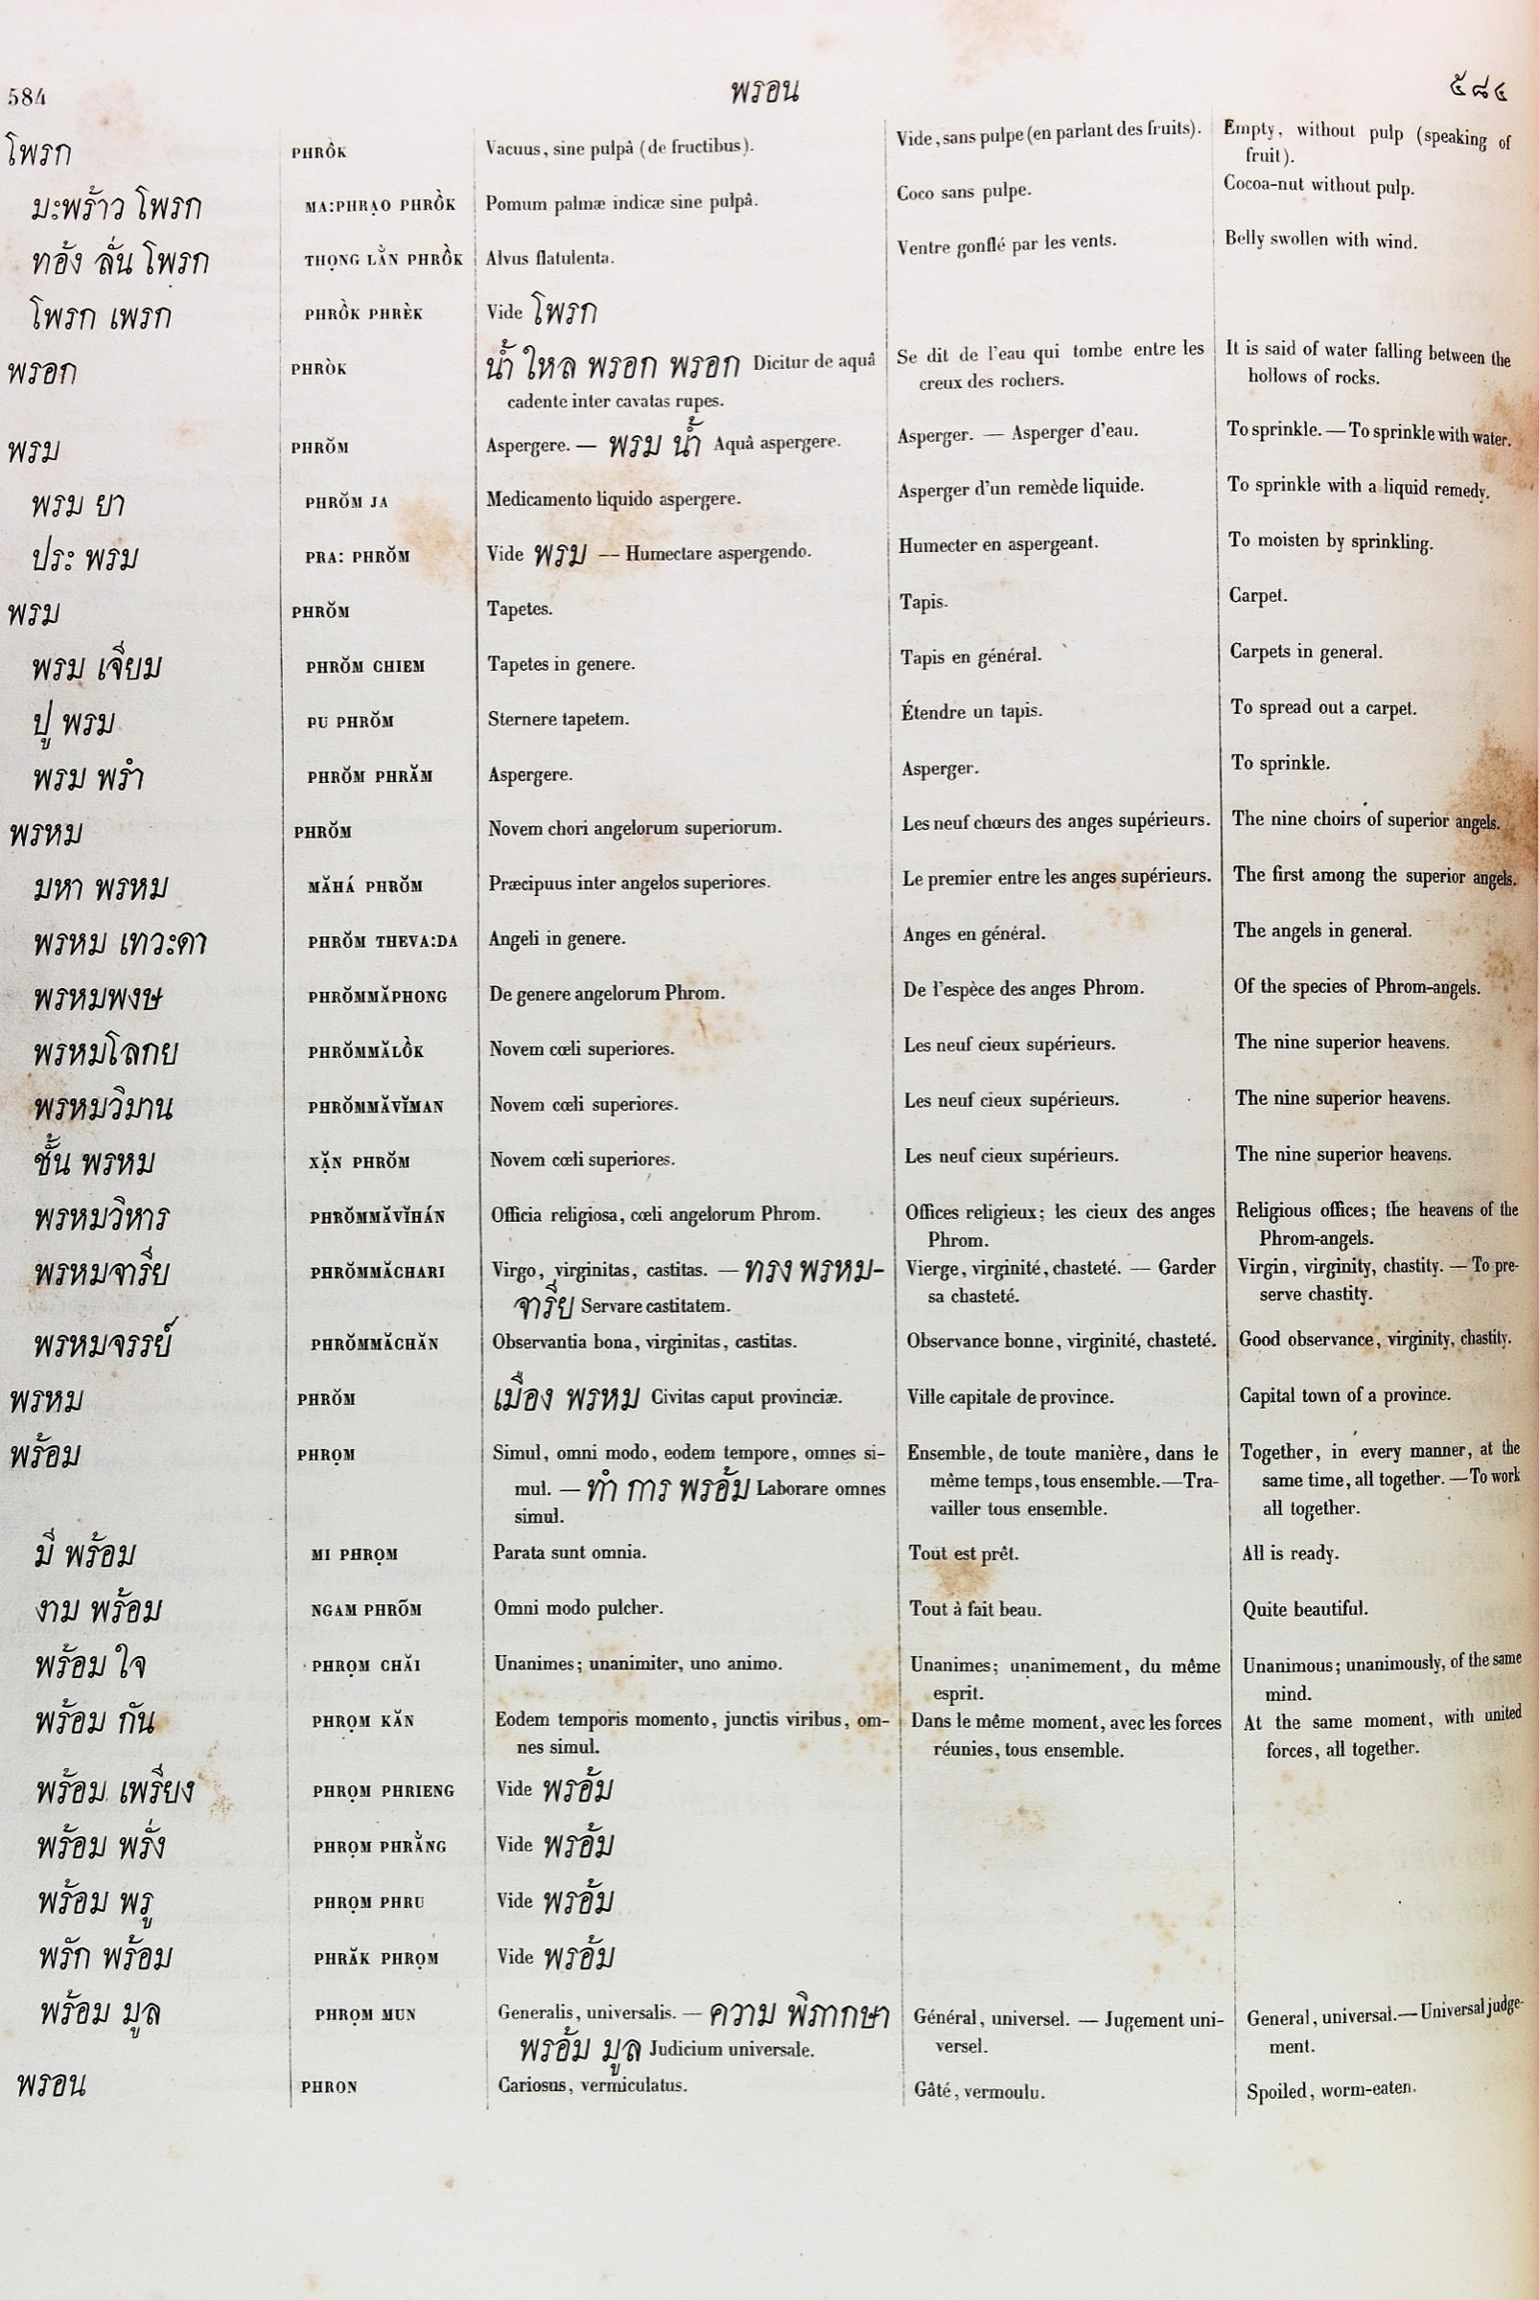 584 พรอน ๕๘๔
โพรก PHRỒK Vacuus, sine pulpâ (de fructibus). Vide, sans pulpe (en parlant des fruits). Empty, without pulp (speaking of
fruit).
มะพร้าว โพรก MA:PHRẠO PHRỒK Pomum palmæ indicæ sine pulpâ. Coco sans pulpe. Cocoa-nut without pulp.
ทอ้ง ลั่น โพรก THỌNG LẲN PHRỒK Alvus flatulenta. Ventre gonflé par les vents. Belly swollen with wind.
โพรก เพรก PHRỒK PHRÈK Vide โพรก
พรอก PHRÒK น้ำ ใหล พรอก พรอก Dicitur de aquâ Se dit de l'eau qui tombe entre les It is said of water falling between the
cadente inter cavatas rupes. creux des rochers. hollows of rocks.
พรม PHRŎM Aspergere. — พรม น้ำ Aquâ aspergere. Asperger. — Asperger d'eau. To sprinkle. — To sprinkle with water.
พรม ยา PHRŎM JA Medicamento liquido aspergere. Asperger d'un remède liquide. To sprinkle with a liquid remedy.
ประ พรม PRA: PHRŎM Vide พรม — Humectare aspergendo. Humecter en aspergeant. To moisten by sprinkling.
พรม PHRŎM Tapetes. Tapis. Carpet.
พรม เจียม PHRŎM CHIEM Tapetes in genere. Tapis en général. Carpets in general.
ปู พรม PU PHRŎM Sternere tapetem. Étendre un tapis. To spread out a carpet.
พรม พรำ PHRŎM PHRĂM Aspergere. Asperger. To sprinkle.
พรหม PHRŎM Novem chori angelorum superiorum. Les neuf chœurs des anges supérieurs. The nine choirs of superior angels.
มหา พรหม MĂHÁ PHRŎM Præcipuus inter angelos superiores. Le premier entre les anges supérieurs. The first among the superior angels.
พรหม เทวะดา PHRŎM THEVA:DA Angeli in genere. Anges en général. The angels in general.
พรหมพงษ PHRŎMMĂPHONG De genere angelorum Phrom. De l'espèce des anges Phrom. Of the species of Phrom-angels.
พรหมโลกย PHRŎMMĂLỒK Novem cœli superiores. Les neuf cieux supérieurs. The nine superior heavens.
พรหมวิมาน PHRŎMMĂVĬMAN Novem cœli superiores. Les neuf cieux supérieurs. The nine superior heavens.
ชั้น พรหม XẶN PHRŎM Novem cœli superiores. Les neuf cieux supérieurs. The nine superior heavens.
พรหมวิหาร PHRŎMMĂVĬHÁN Officia religiosa, cœli angelorum Phrom. Offices religieux; les cieux des anges Religious offices; the heavens of the
Phrom. Phrom-angels.
พรหมจารีย PHRŎMMĂCHARI Virgo, virginitas, castitas. — ทรง พรหม- Vierge, virginité, chasteté. — Garder Virgin, virginity, chastity. — To pre-
จารีย Servare castitatem. sa chasteté. serve chastity.
พรหมจรรย์ PHRŎMMĂCHĂN Observantia bona, virginitas, castitas. Observance bonne, virginité, chasteté. Good observance, virginity, chastity.
พรหม PHRŎM เมือง พรหม Civitas caput provinciæ. Ville capitale de province. Capital town of a province.
พร้อม PHRỌM Simul, omni modo, eodem tempore, omnes si- Ensemble, de toute manière, dans le Together, in every manner, at the
mul. — ทำ การ พรอ้ม Laborare omnes même temps, tous ensemble.—Tra- same time, all together. — To work
simul. vailler tous ensemble. all together.
มี พร้อม MI PHRỌM Parata sunt omnia. Tout est prêt. All is ready.
งาม พร้อม NGAM PHRÕM Omni modo pulcher. Tout à fait beau. Quite beautiful.
พร้อม ใจ PHRỌM CHĂI Unanimes; unanimiter, uno animo. Unanimes; unanimement, du même Unanimous; unanimously, of the same
esprit. mind.
พร้อม กัน PHRỌM KĂN Eodem temporis momento, junctis viribus, om- Dans le même moment, avec les forces At the same moment, with united
nes simul. réunies, tous ensemble. forces, all together.
พร้อม เพรียง PHRỌM PHRIENG Vide พรอ้ม
พร้อม พรั่ง PHRỌM PHRẲNG Vide พรอ้ม
พร้อม พรู PHRỌM PHRU Vide พรอ้ม
พรัก พร้อม PHRĂK PHRỌM Vide พรอ้ม
พร้อม มูล PHRỌM MUN Generalis, universalis. — ความ พิภากษา Général, universel. — Jugement uni- General, universal.— Universal judge-
พรอ้ม มูล Judicium universale. versel. ment.
พรอน PHRON Cariosus, vermiculatus. Gâté, vermoulu. Spoiled, worm-eaten.